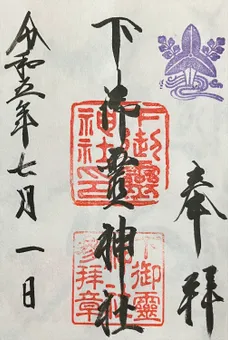 奉拝
下御霊神社
下御靈神社印
下御靈神社参拝章
令和五年七月一日